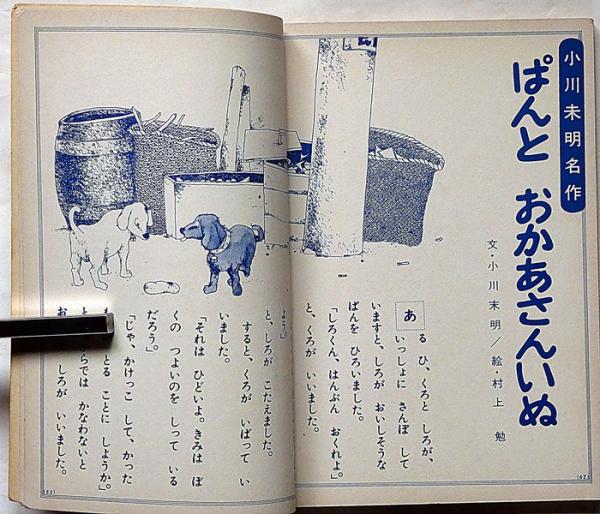 小川未明名作
ぱんと おかあさんいぬ
文・小川未明／絵・村上 勉
ある ひ、くろと しろが、
いっしょに さんぽ して
いますと、しろが おいしそうな
ぱんを ひろいました。
「しろくん、はんぶん おくれよ。」
と、くろが いいました。
(62)
よう。」
と、しろが こたえました。
すると、くろが いばって い
いました。
「それは ひどいよ。きみは ぼ
くの つよいのを しって いる
だろう。」
「じゃ、かけっこ して、かった
とる ことに しようか。」
と からでは かなわないと
お しろが いいました。
(63)